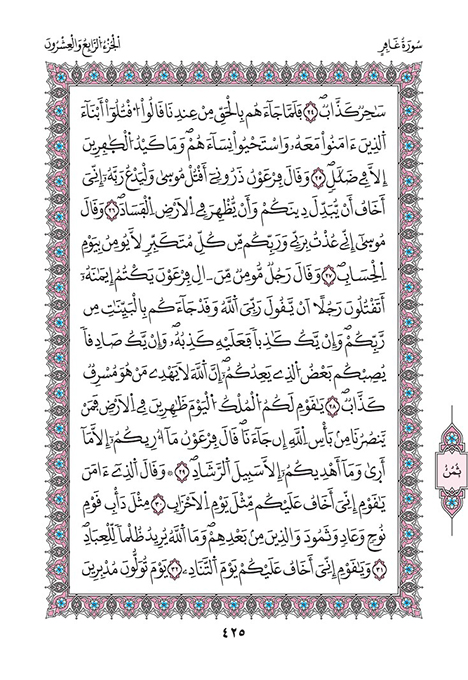 سُورَةُ غَافِرٍ
الجُزْءُ الرَّابِعُ وَالْعِشْرُونَ
سَٰحِرٌ كَذَّابٌۖ ٢٤ فَلَمَّا جَآءَهُم بِالْحَقِّ مِنْ عِندِنَا قَالُوا۟ اُ۟قْتُلُوٓا۟ أَبْنَآءَ
اَ۬لذِينَ ءَامَنُوا۟ مَعَهُۥ وَاسْتَحْيُوا۟ نِسَآءَهُمْۖ وَمَا كَيْدُ اُ۬لْكَٰفِرِينَ
إِلَّا فِے ضَلَٰلٍۖ ٢٥ وَقَالَ فِرْعَوْنُ ذَرُونِےٓ أَقْتُلْ مُوسَىٰ وَلْيَدْعُ رَبَّهُۥٓۖ إِنِّيَ
أَخَافُ أَنْ يُّبَدِّلَ دِينَكُمْ وَأَنْ يُّظْهِرَ فِے اِ۬لَارْضِ اِ۬لْفَسَادَۖ ٢٦ وَقَالَ
مُوسَىٰٓ إِنِّے عُذْتُ بِرَبِّے وَرَبِّكُم مِّن كُلِّ مُتَكَبِّرٍ لَّا يُومِنُ بِيَوْمِ
اِ۬لْحِسَابِۖ ٢٧ وَقَالَ رَجُلٌ مُّومِنٌ مِّنَ ـ۬الِ فِرْعَوْنَ يَكْتُمُ إِيمَٰنَهُۥٓ
أَتَقْتُلُونَ رَجُلًا اَنْ يَّقُولَ رَبِّيَ اَ۬للَّهُ وَقَدْ جَآءَكُم بِالْبَيِّنَٰتِ مِن
رَّبِّكُمْۖ وَإِنْ يَّكُ كَٰذِبًا فَعَلَيْهِ كَذِبُهُۥۖ وَإِنْ يَّكُ صَادِقًا
يُصِبْكُم بَعْضُ اُ۬لذِے يَعِدُكُمُۥٓۖ إِنَّ اَ۬للَّهَ لَا يَهْدِے مَنْ هُوَ مُسْرِفٌ
كَذَّابٌۖ ٢٨ يَٰقَوْمِ لَكُمُ اُ۬لْمُلْكُ اُ۬لْيَوْمَ ظَٰهِرِينَ فِے اِ۬لَارْضِ فَمَنْ
يَّنصُرُنَا مِنۢ بَأْسِ اِ۬للَّهِ إِن جَآءَنَاۖ قَالَ فِرْعَوْنُ مَآ أُرِيكُمُۥٓ إِلَّا مَآ
أَر۪ىٰ وَمَآ أَهْدِيكُمُۥٓ إِلَّا سَبِيلَ اَ۬لرَّشَادِۖ ٢٩ وَقَالَ اَ۬لذِےٓ ءَامَنَ
يَٰقَوْمِ إِنِّيَ أَخَافُ عَلَيْكُم مِّثْلَ يَوْمِ اِ۬لَاحْزَابِ ٣٠ مِثْلَ دَأْبِ قَوْمِ
نُوحٍ وَعَادٍ وَثَمُودَ وَالذِينَ مِنۢ بَعْدِهِمْۖ وَمَا اَ۬للَّهُ يُرِيدُ ظُلْمًا لِّلْعِبَادِۖ
٣١ وَيَٰقَوْمِ إِنِّيَ أَخَافُ عَلَيْكُمْ يَوْمَ اَ۬لتَّنَادِۦ ٣٢ يَوْمَ تُوَلُّونَ مُدْبِرِينَ
ثُمُنٌ
٤٢٥